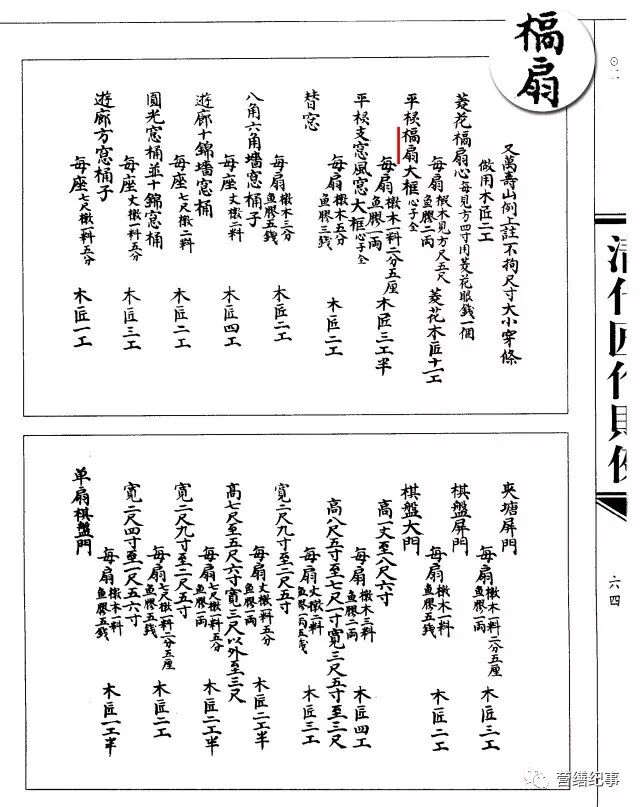 槅扇
又萬壽山例上註不拘尺寸大小穿條
做用木匠二工
菱花槅扇心每見方四寸用菱花眼錢一個
每扇椴木見方尺五尺 魚膠二两 菱花木匠十一工
平棂槅扇大框心子全
每扇椴木一料二分五厘 魚膠一两 木匠三工半
平棂支窓風窓大框心子全
每扇椴木五分 魚膠三錢 木匠二工
替窓
每扇椴木三分 魚膠五錢 木匠二工
八角六角墻窓桶子
每座丈椴二料 木匠四工
遊廊十錦墻窓桶
每座七尺椴二料 木匠二工
圓光窓桶並十錦窓桶
每座丈椴一料五分 木匠三工
遊廊方窓桶子
每座七尺椴一料五分 木匠一工
夾塘屏門
每扇椴木一料二分五厘 魚膠一两 木匠三工
棋盤屏門
每扇椴木一料 魚膠五錢 木匠二工
棋盤大門
高一丈至八尺六寸
每扇椴木三料 魚膠二两 木匠四工
高八尺五寸至七尺一寸寬三尺五寸至三尺
每扇丈椴二料 魚膠一两五錢 木匠三工
寬二尺九寸至二尺五寸
每扇丈椴一料五分 魚膠一两 木匠二工半
高七尺至五尺六寸寬三尺以外至三尺
每扇七尺椴一料五分 魚膠一两 木匠二工半
寬二尺九寸至二尺五寸
每扇七尺椴一料二分五厘 魚膠五錢 木匠二工
寬二尺四寸至一尺五六寸
每扇椴木一料 魚膠五錢 木匠一工半
单扇棋盤門
清代匠作則例
六四
营缮纪事